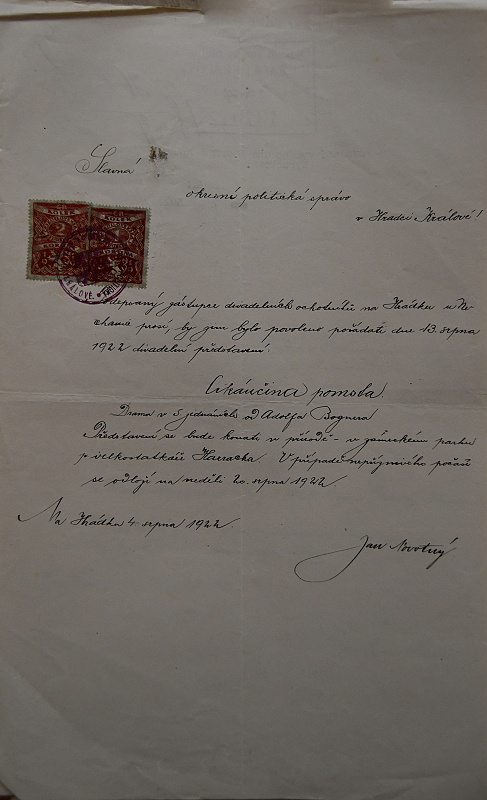 Slavná
okresní politická správo
v Hradci Králové!
KOLEK KOLEK
2
Podepsaný zástupce divadelních ochotníků na Hrádku u Ne-
chanic prosí, by jim bylo povoleno pořádati dne 13. srpna
1922 divadelní představení:
Cikánčina pomsta.
Drama v 5 jednáních od Adolfa Bognera
Představení se bude konati v přírodě - v zámeckém parku
p. velkostatkáře Harracha. V případě nepříznivého počasí
se odloží na neděli 20. srpna 1922
Na Hrádku 4. srpna 1922.
Jan Novotný